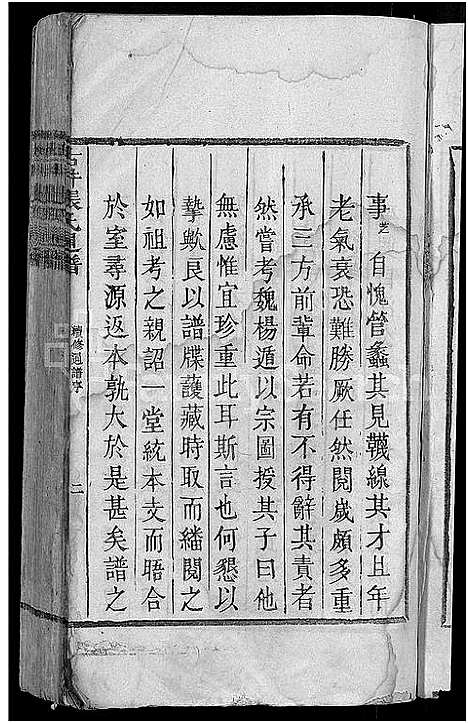 事芝自愧管蠡其見韈線其才丑年
老氣衰恐難勝厥任然閱歲頗多重
承三方前輩命若有不得辭其責者
然嘗考魏楊遁以宗圖授其子曰他
無慮惟宜珍重此耳斯言也何懇以
摯歟良以譜牒護藏時取而繙閱之
如祖考之親詔一堂統本支而晤合
於室尋源返本孰大於是甚矣譜之
張氏通譜
續修通譜序
二